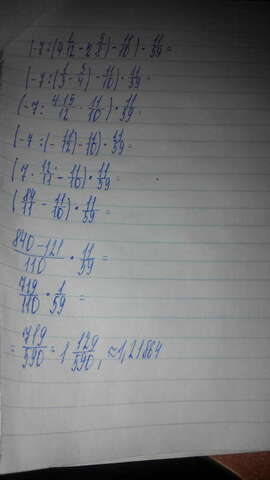 (-7:(4 1/12 - 4 5/6) - 11/10) · 11/59 =
(-7:(1/3 - 5/4) - 11/10) · 11/59 =
(-7: 4-15/12 - 11/10) · 11/59
(-7:(-11/12) - 11/10) · 11/59 =
(7 · 12/11 - 11/10) · 11/59 =
(84/11 - 11/10) · 11/59
840-121/110 · 11/59 =
719/110 · 1/59 =
= 719/590 = 1 129/590, ≈1,21864